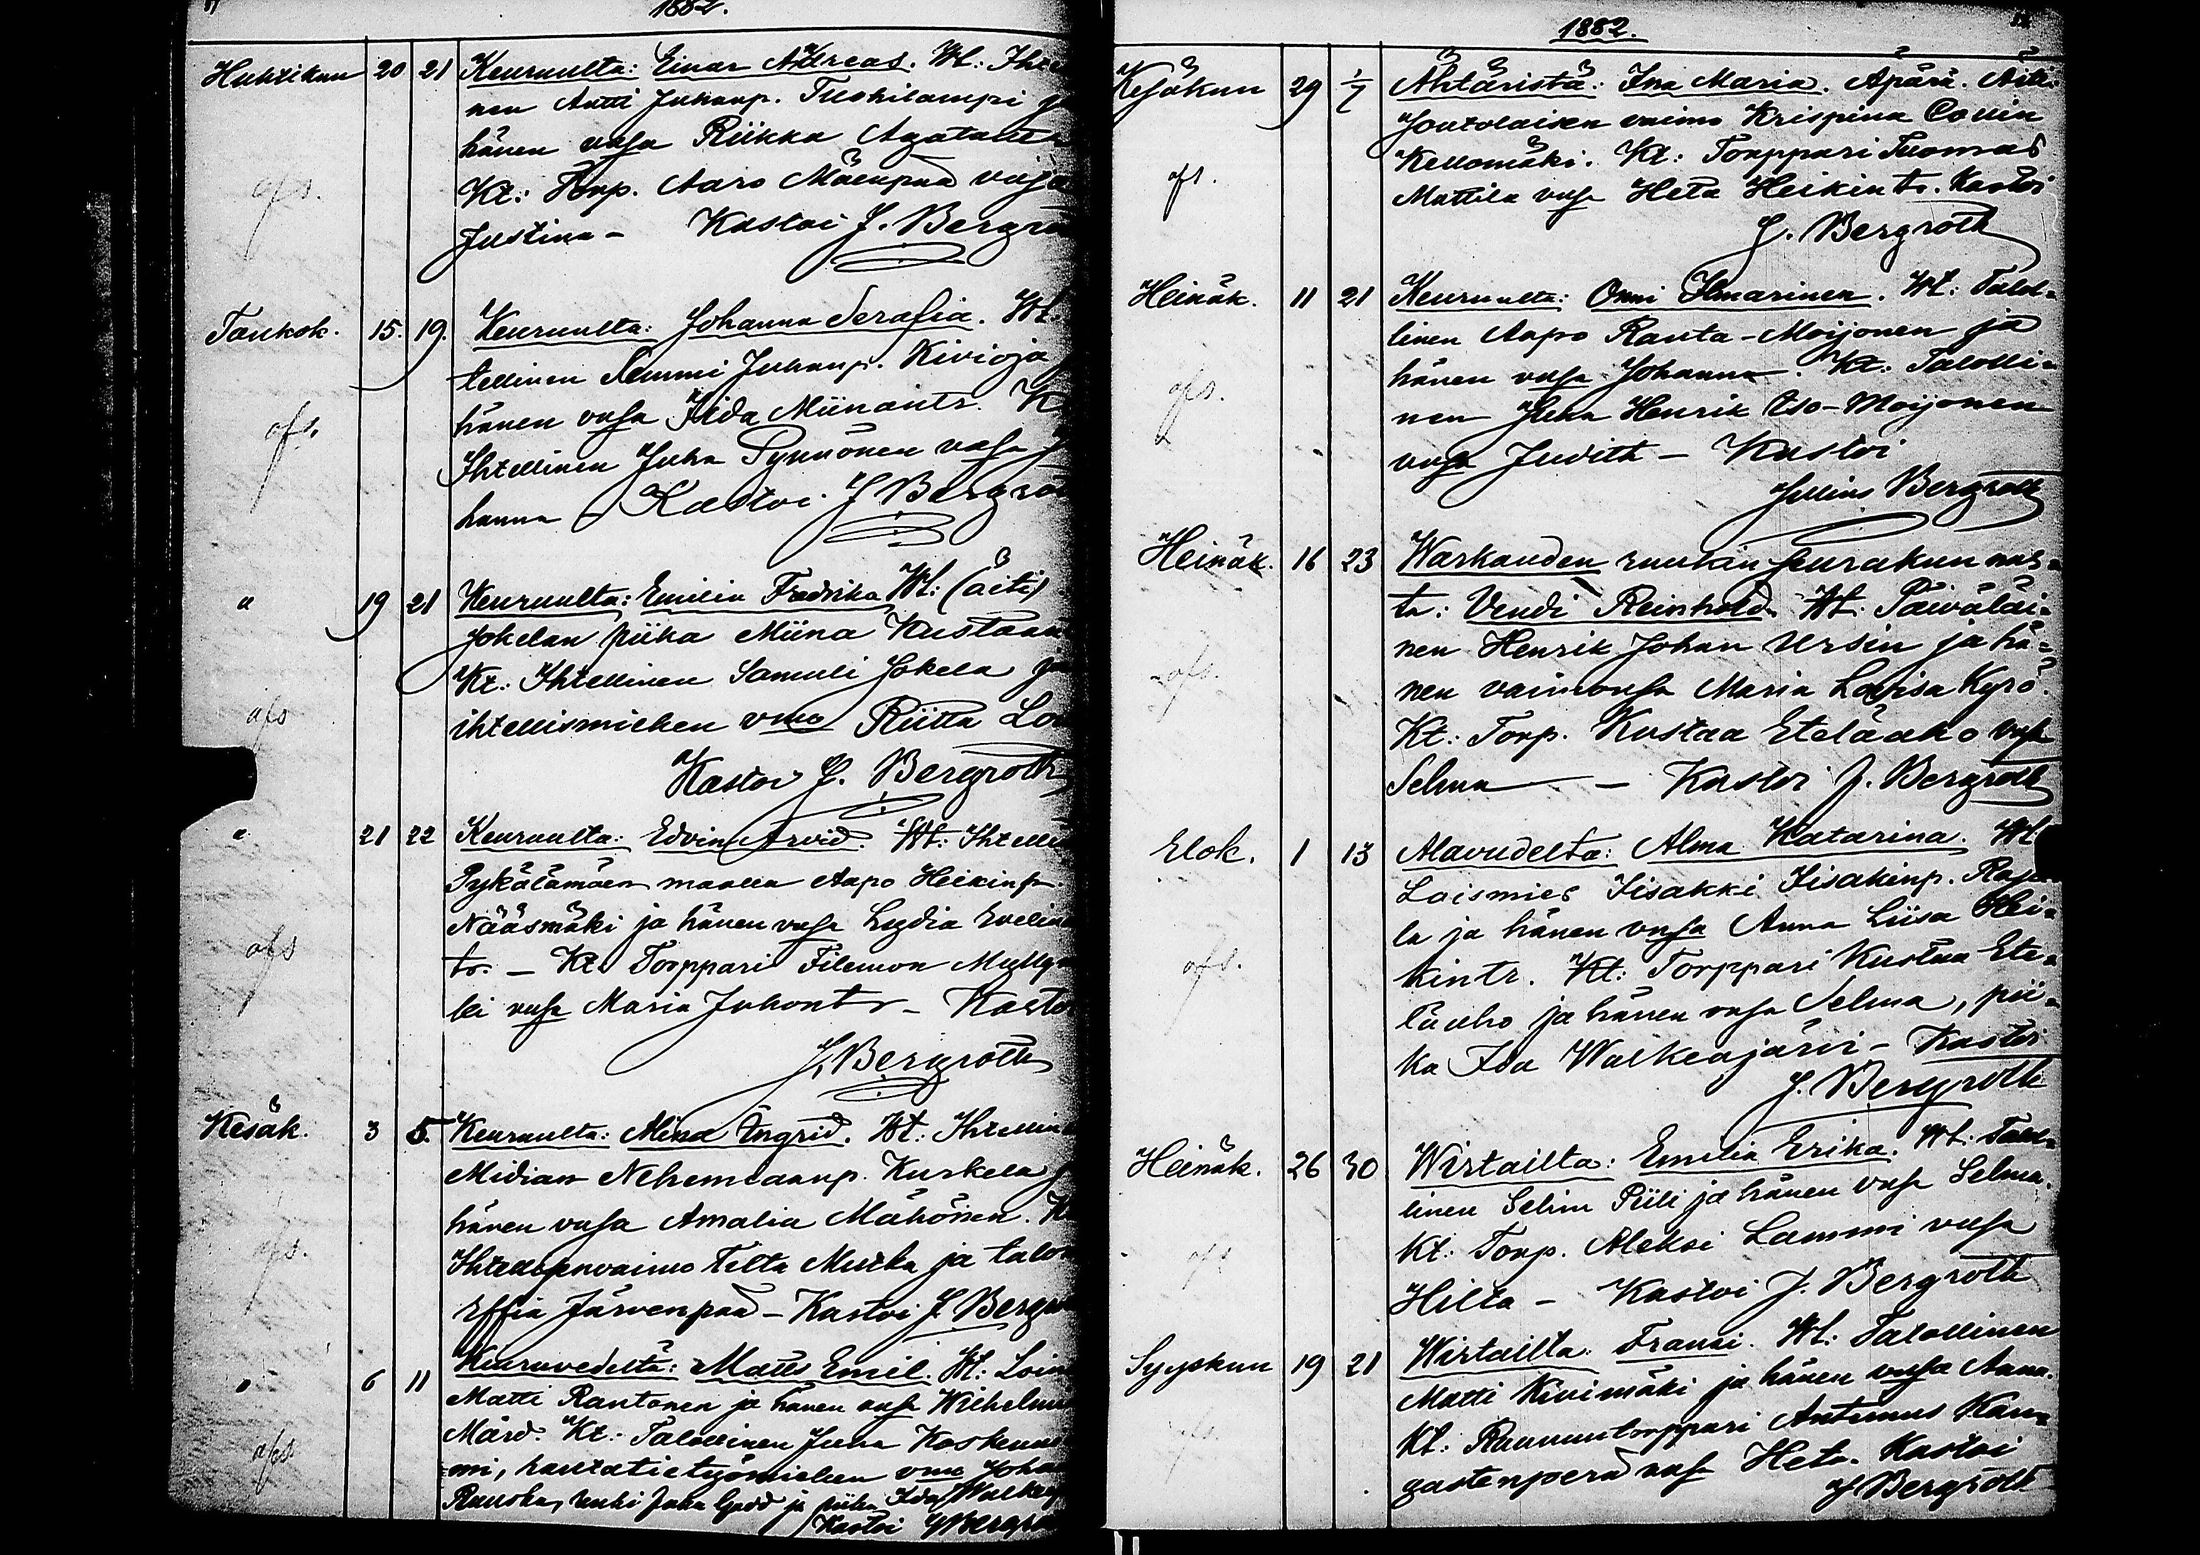 1882.
Huhtikuu 20 21 Keuruulta: Einar Andreas. Wt: Ihte
nen Antti Juhanp. Tuohilampi
hänen vssa Riikka Agata
ofs. Kt: Torp. Aaro Mäenpää vssa
Justina – Kastoi J. Bergro
Toukok. 15. 19. Keuruulta: Johanna Serafia. Wt.
tellinen Nummi Juhanp. Kivioja
ofs. hänen vssa Iida Miinantr. K
Ihtellinen Juha Pynnönen vssa J
hanna – Kastoi J Bergro
" 19 21 Keuruulta: Emilia Fredrika Wt: (äiti)
Jokelan piika Miina Kustaan
Kt: Ihtellinen Samuli Jokela
ofs ihtellismiehen vmo Riitta Lo
Kastoi J. Bergroth
" 21 22 Keuruulta: Edvin Arvid. Wt: Ihtelli
Pykälämäen maalla Aapo Heikinp.
Nääsmäki ja hänen vssa Lydia Evelina
ofs tr. – Kt. Torppari Filemon Mylly
ki vssa Maria Juhontr – Kasto
J. Bergroth
Kesäk. 3 5. Keuruulta: Mina Ingrid. Wt: Ihtellin
Midian Nehemiaanp. Kurkela
hänen vssa Amalia Mähönen. K
ofs. Ihtellisenvaimo Tilta Mutka ja talon
Effia Järvenpää – Kastoi J. Bergro
" 6 11 Keuruvedeltä: Matts Emil. Wt: Lois
Matti Rantonen ja hänen vssa Wilhelmi
Mård. Kt: Talollinen Juha Koskenni
ofs. mi, rautatietyömiehen vmo Joha
Ruuska, renki Juha Gadd ja piika Ida Walkea
Kastoi J Bergro
1882.
Kesäkuu 29 1/7 Ähtäristä: Ina Maria. Äpärä. Äiti:
Joutolaisen vaimo Krispina
Kellomäki. Kt: Torppari Tuomas
ofs. Mattila vssa Heta Heikintr. Kastoi
J. Bergroth
Heinäk. 11 21 Keuruulta: Onni Ilmarinen. Wt: Talol-
linen Aapo Ranta-Moijonen ja
hänen vssa Johanna. Kt: Talolli-
ofs. nen Juha Henrik Iso-Moijonen
vssa Judith – Kastoi
Julius Bergroth
Heinäk. 16 23 Warkauden ruukin seurakunnas-
ta: Vendi Reinhold. Wt: Päiväläi-
nen Henrik Johan Ursin ja hä-
ofs. nen vaimonsa Maria Lovisa Kyrö.
Kt: Torp. Kustaa Eteläaho vssa
Selma – Kastoi J. Bergroth
Elok. 1 13 Alavudelta: Alma Katarina. Wt
Loismies Iisakki Iisakinp. Raja
la ja hänen vssa Anna Liisa Hei-
ofs. kintr. Kt: Torppari Kustaa Ete-
läaho ja hänen vssa Selma, pii-
ka Ida Walkeajärvi – Kastoi
J. Bergroth
Heinäk. 26 30 Wirtailta: Emilia Erika. Wt: Talol-
linen Selim Piili ja hänen vssa Selma.
ofs Kt: Torp. Aleksi Lammi vssa
Hilta – Kastoi J. Bergroth
Syyskuu 19 21 Wirtailta: Fransi. Wt: Talollinen
Matti Kivimäki ja hänen vssa Anna.
ofs. Kt: Ruununtorppari Antinus Kan-
gastenperä vssa Heta. Kastoi
J Bergroth